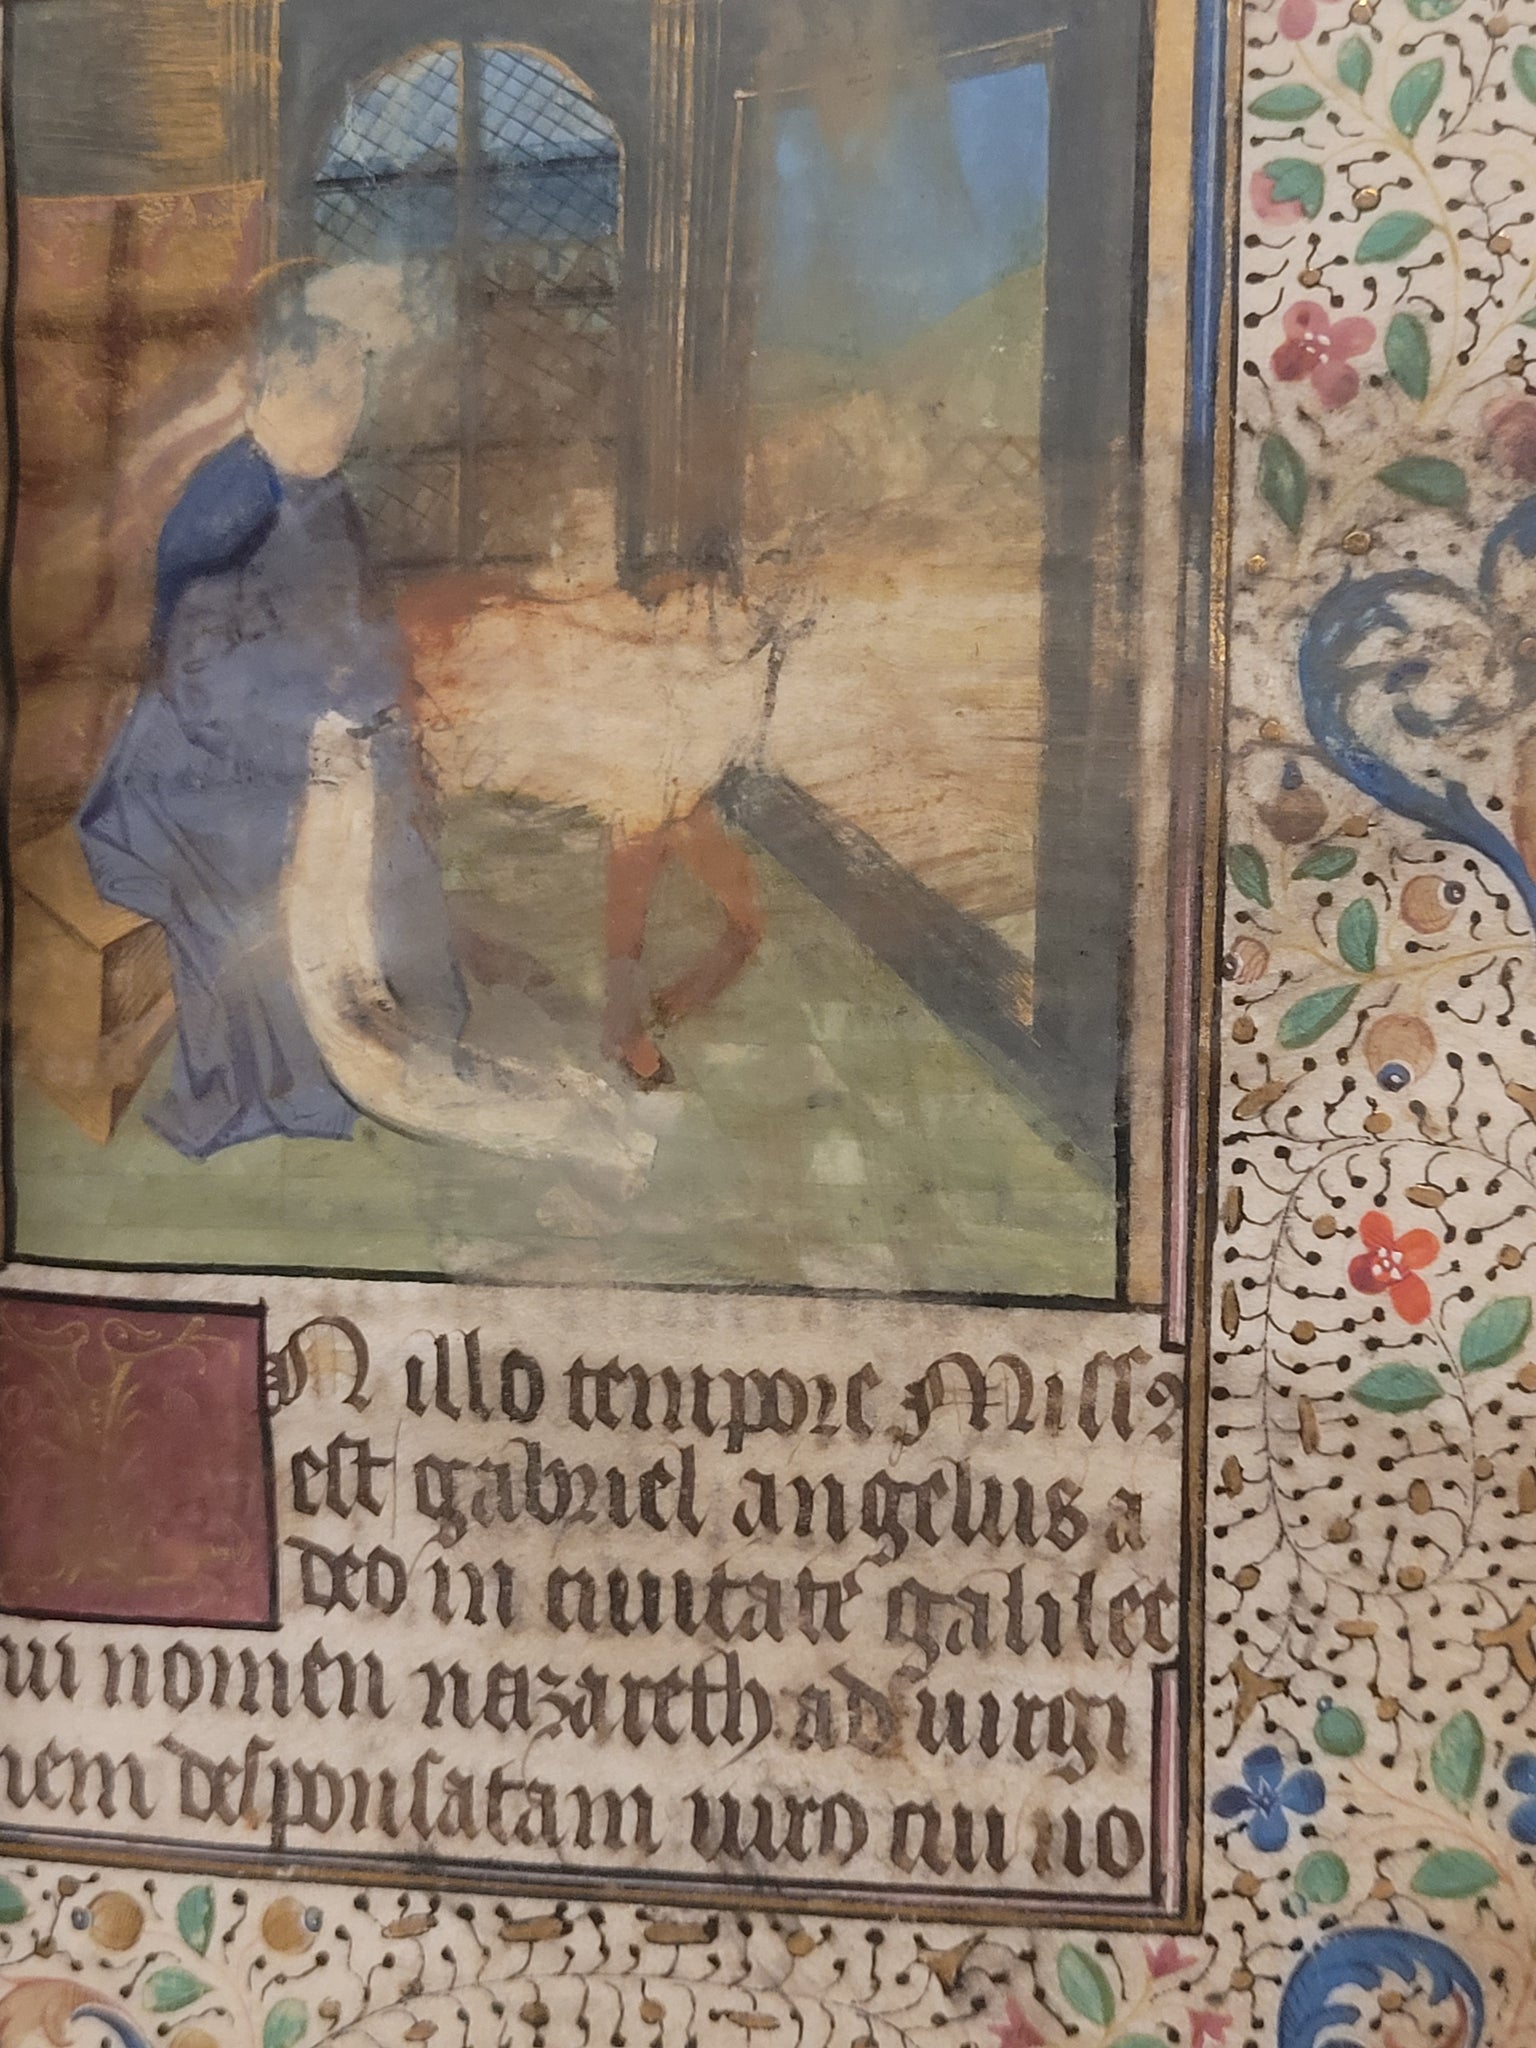 N illo tempore Miss⁹
est gabriel angelus a
deo in ciuitate galilee
ui nomen nazareth ad uirgi
nem desponsatam uiro cui no